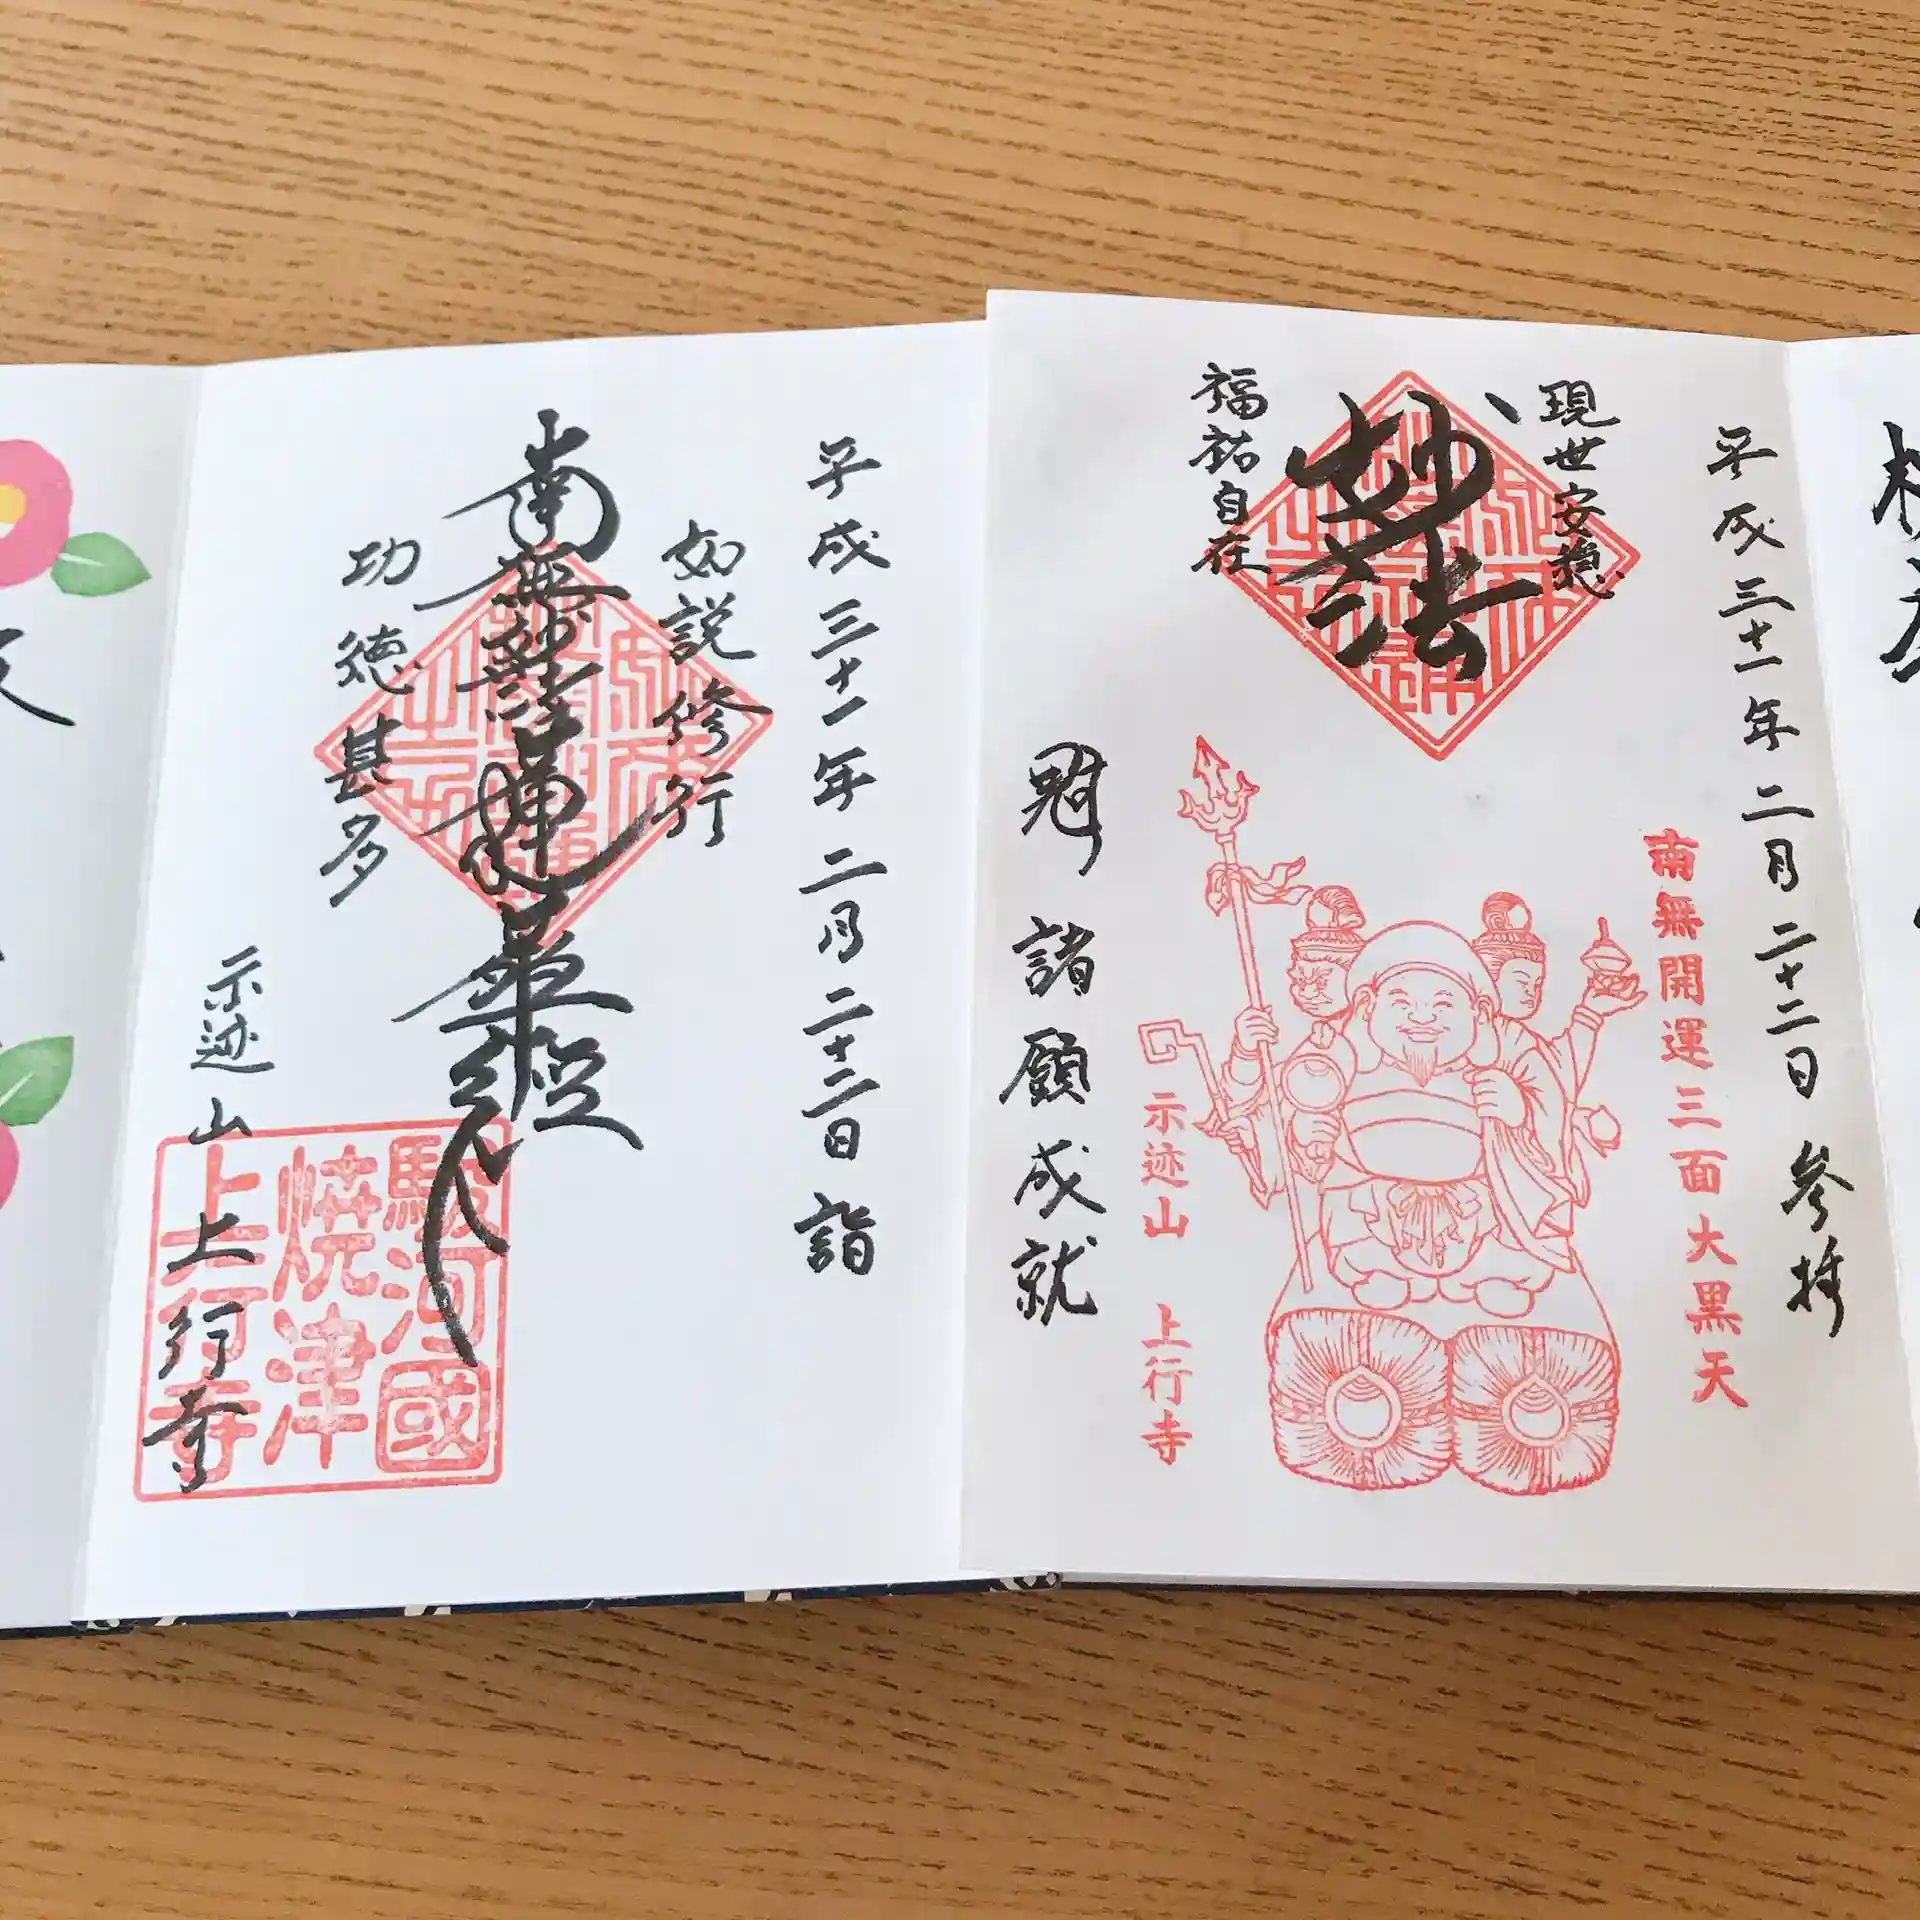 平成三十一年二月二十二日 参拝
南無開運三面大黒天
現世安穏
妙法
福祐自在
示迹山 上行寺
諸願成就
平成三十一年二月二十二日 詣
如説修行
南無妙法蓮華経
功徳甚多
示迹山 上行寺
駿河國
焼津
上行寺